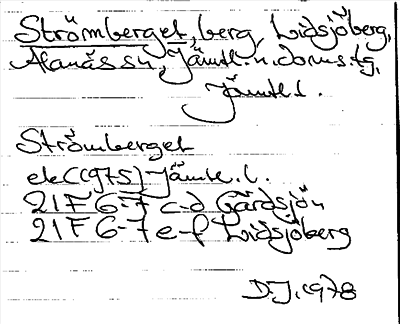 Strömberget, berg, Lidsjöberg,
Alanäs sn, Jämtl. n. doms.tg,
Jämtl. l.
Strömberget
ek (1975) Jämtl. l.
21F 6-7 c-d Gårdsjön
21F 6-7 e-f Lidsjöberg
D.J. 1978